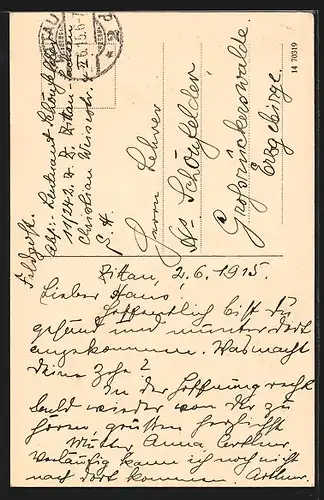 ZITTAU
2.6.15. 6-7
* 2 d
14 70319
Feldpost.
Abs.: Leutnant Schönfelder
11/242. z. Z. Zittau
Christian Weisestr.
Herrn Lehrer
Schönfelder
Großrückerswalde.
Erzgebirge.
Zittau, 2.6.1915.
Lieber Hans!
Hoffentlich bist du
gesund und munter dort
angekommen. Was macht
deine Zehe?
In der Hoffnung recht
bald wieder von dir zu
hören, grüßen herzlichst
Mutter, Anna, Arthur.
Vorläufig kann ich noch nicht
nach dort kommen. Arthur.